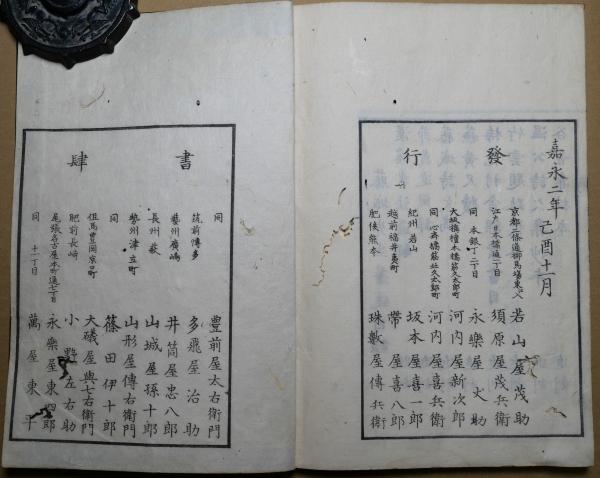 嘉永二年己酉十一月
發行
京都二條通御馬場東へ入 若山屋茂助
江戸日本橋通一丁目 須原屋茂兵衛
同 本銀丁二丁目 永樂屋丈助
大坂橋檀木橋筋久太郎町 河内屋新次郎
同 心斎橋筋北久太郎町 河内屋喜兵衛
紀州若山 坂本屋喜一郎
越前福井夷町 帶屋喜八郎
肥後熊本 珠數屋傳兵衛
書肆
同 豊前屋太右衛門
筑前博多 多飛屋治助
藝州廣嶋 井筒屋忠八郎
長州萩 山城屋孫十郎
勢州津立町 山形屋傳右衛門
同 篠田伊十郎
但馬豊岡京口町 大磯屋與七右衛門
肥前長崎 小野左右助
尾張名古屋本町通七丁目 永樂屋東四郎
同 十一丁目 萬屋東平